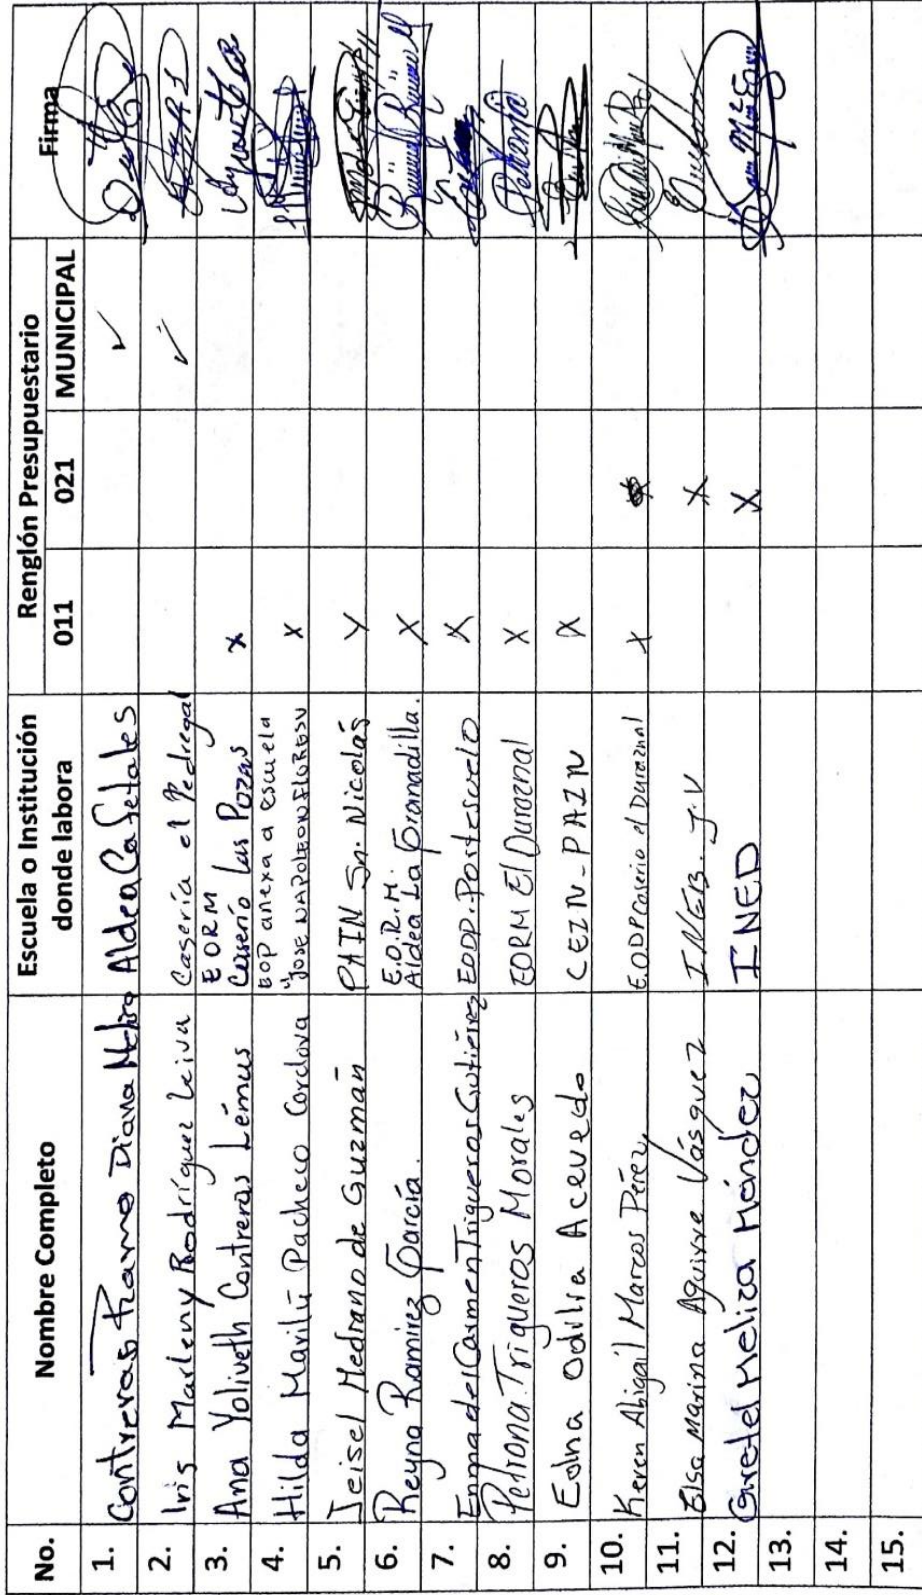 No. Nombre Completo Escuela o Institución donde labora Renglón Presupuestario Firma
011 021 MUNICIPAL
1. Contreras Ramo Diana Aldea Cafetales ✓
2. Iris Marleny Rodríguez Leiva Casería el Pedregal ✓
3. Ana Yoliveth Contreras Lemus EORM Caserío Las Pozas x
4. Hilda Marilú Pacheco Cordova EOP anexa a escuela "JOSE NAPOLEON FLORES x
5. Jeisel Medrano de Guzmán PAIN Sn. Nicolás X
6. Reyna Ramirez García. E.O.R.M. Aldea La Granadilla. X
7. Enma del Carmen Trigueros Gutiérrez EODP. Portesuelo X
8. Petrona Trigueros Morales EORM El Duraznal X
9. Edna Odilia Acevedo CEIN-PAIN X
10. Keren Abigail Marcos Pérez E.O.D.P Caserio el Duraznal X
11. Elsa Marina Aguirre Vásquez INEB. J.V X
12. Gretel Meliza Méndez INED X
13.
14.
15.